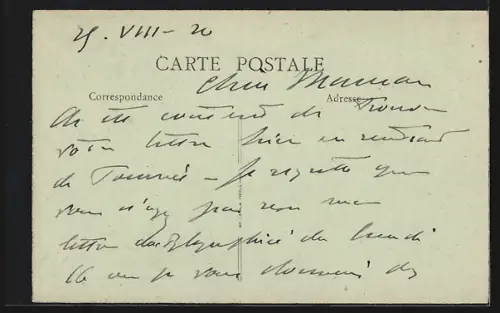 25. VIII - 20
CARTE POSTALE
Chère Maman
Correspondance
Adresse
été content de Trouver
votre lettre hier en rentrant
de Tournée - Je regrette que
vous n'ayez pas reçu ma
lettre du lundi
16 où je vous donnais des